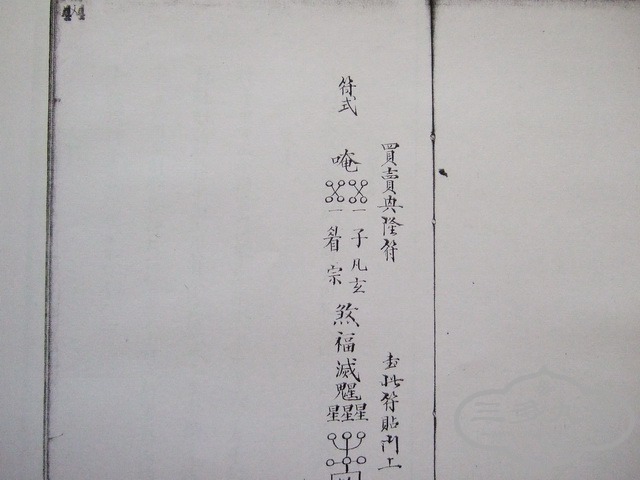 買賣興隆符 書此符貼門上
符式
唵
一 一
子
凡玄
宗
煞福滅魒
星星星